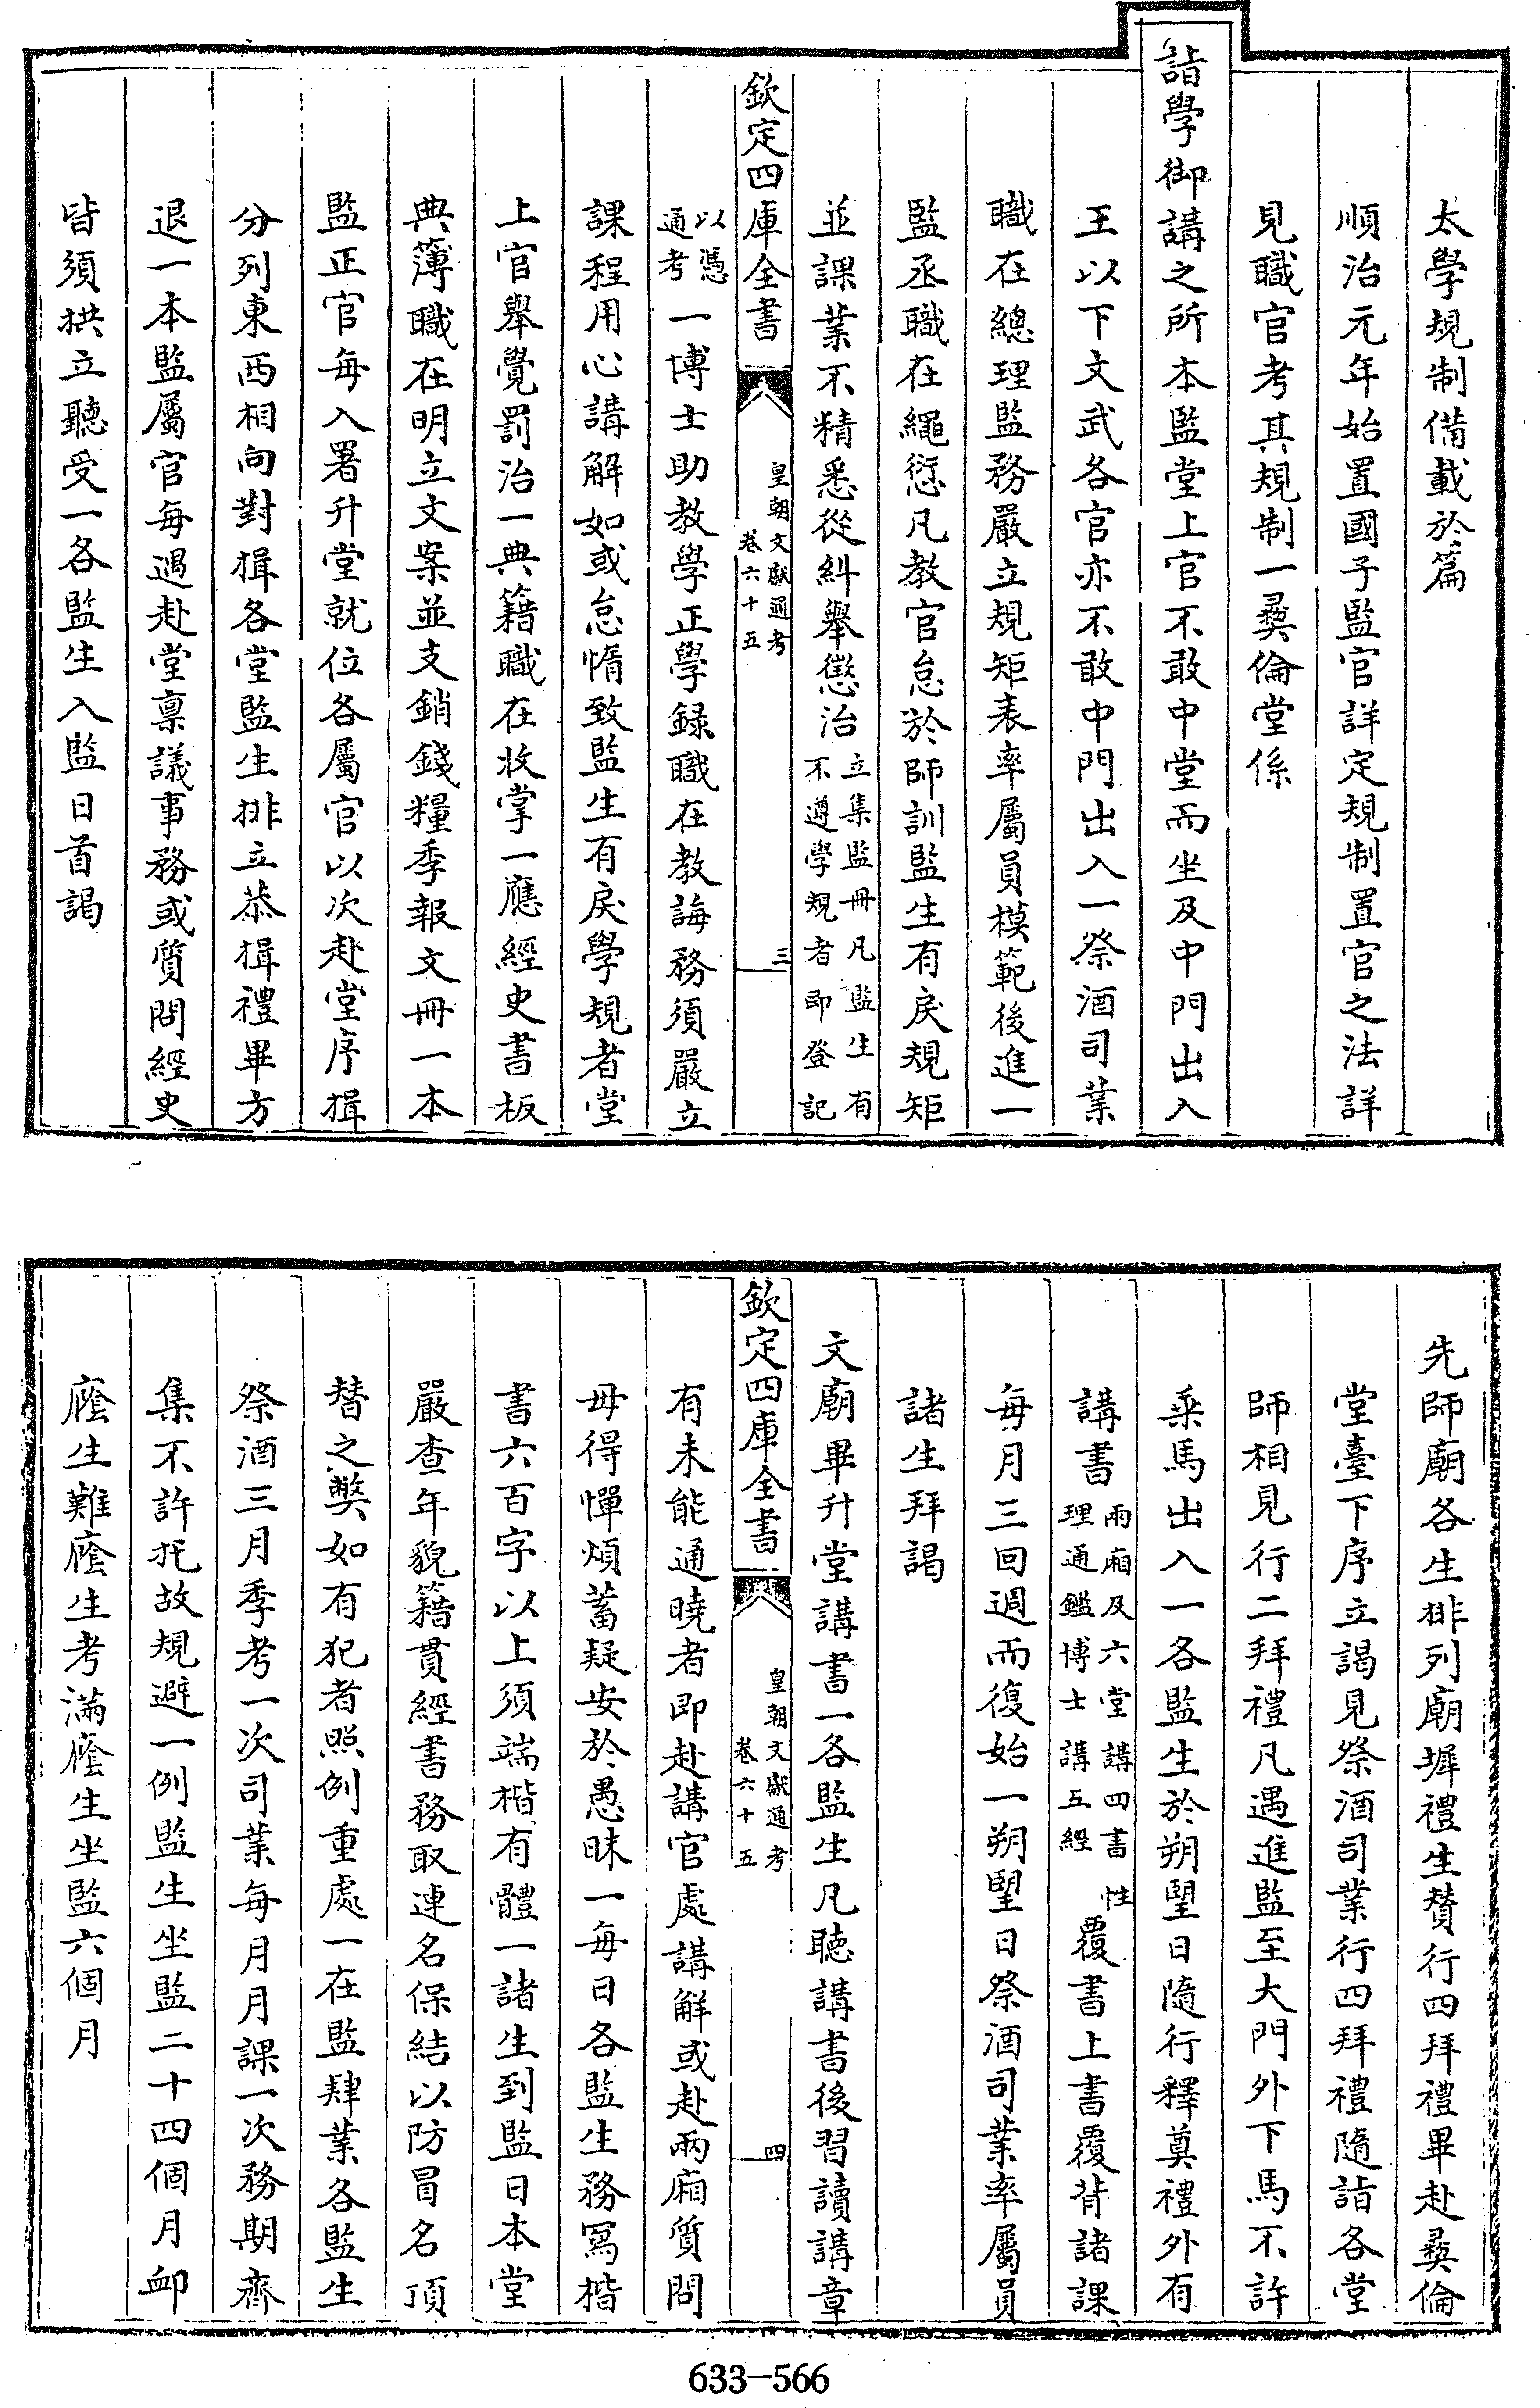 太學規制備載於篇
順治元年始置國子監官詳定規制置官之法詳
見職官考其規制一彝倫堂係
詣學御講之所本監堂上官不敢中堂而坐及中門出入
王以下文武各官亦不敢中門出入一祭酒司業
職在總理監務嚴立規矩表率屬員模範後進一
監丞職在繩愆凡教官怠於師訓監生有戾規矩
並課業不精悉從糾舉懲治立集監冊凡監生有不遵學規者即登記
欽定四庫全書 皇朝文獻通考 卷六十五 三
以憑通考一博士助教學正學録職在教誨務須嚴立
課程用心講解如或怠惰致監生有戾學規者堂
上官舉覺罰治一典籍職在收掌一應經史書板
典簿職在明立文案並支銷錢糧季報文冊一本
監正官每入署升堂就位各屬官以次赴堂序揖
分列東西相向對揖各堂監生排立恭揖禮畢方
退一本監屬官每遇赴堂稟議事務或質問經史
皆須拱立聽受一各監生入監日首謁
先師廟各生排列廟墀禮生贊行四拜禮畢赴彝倫
堂臺下序立謁見祭酒司業行四拜禮隨詣各堂
師相見行二拜禮凡遇進監至大門外下馬不許
乘馬出入一各監生於朔望日隨行釋奠禮外有
講書兩廂及六堂講四書性理通鑑博士講五經覆書上書覆背諸課
每月三回週而復始一朔望日祭酒司業率屬員
諸生拜謁
文廟畢升堂講書一各監生凡聽講書後習讀講章
欽定四庫全書 皇朝文獻通考 卷六十五 四
有未能通曉者即赴講官處講解或赴兩廂質問
毋得憚煩蓄疑安於愚昧一每日各監生務寫楷
書六百字以上須端楷有體一諸生到監日本堂
嚴查年貌籍貫經書務取連名保結以防冒名頂
替之獘如有犯者照例重處一在監肄業各監生
祭酒三月季考一次司業每月月課一次務期齊
集不許托故規避一例監生坐監二十四個月卹
廕生難廕生考滿廕生坐監六個月
633-566